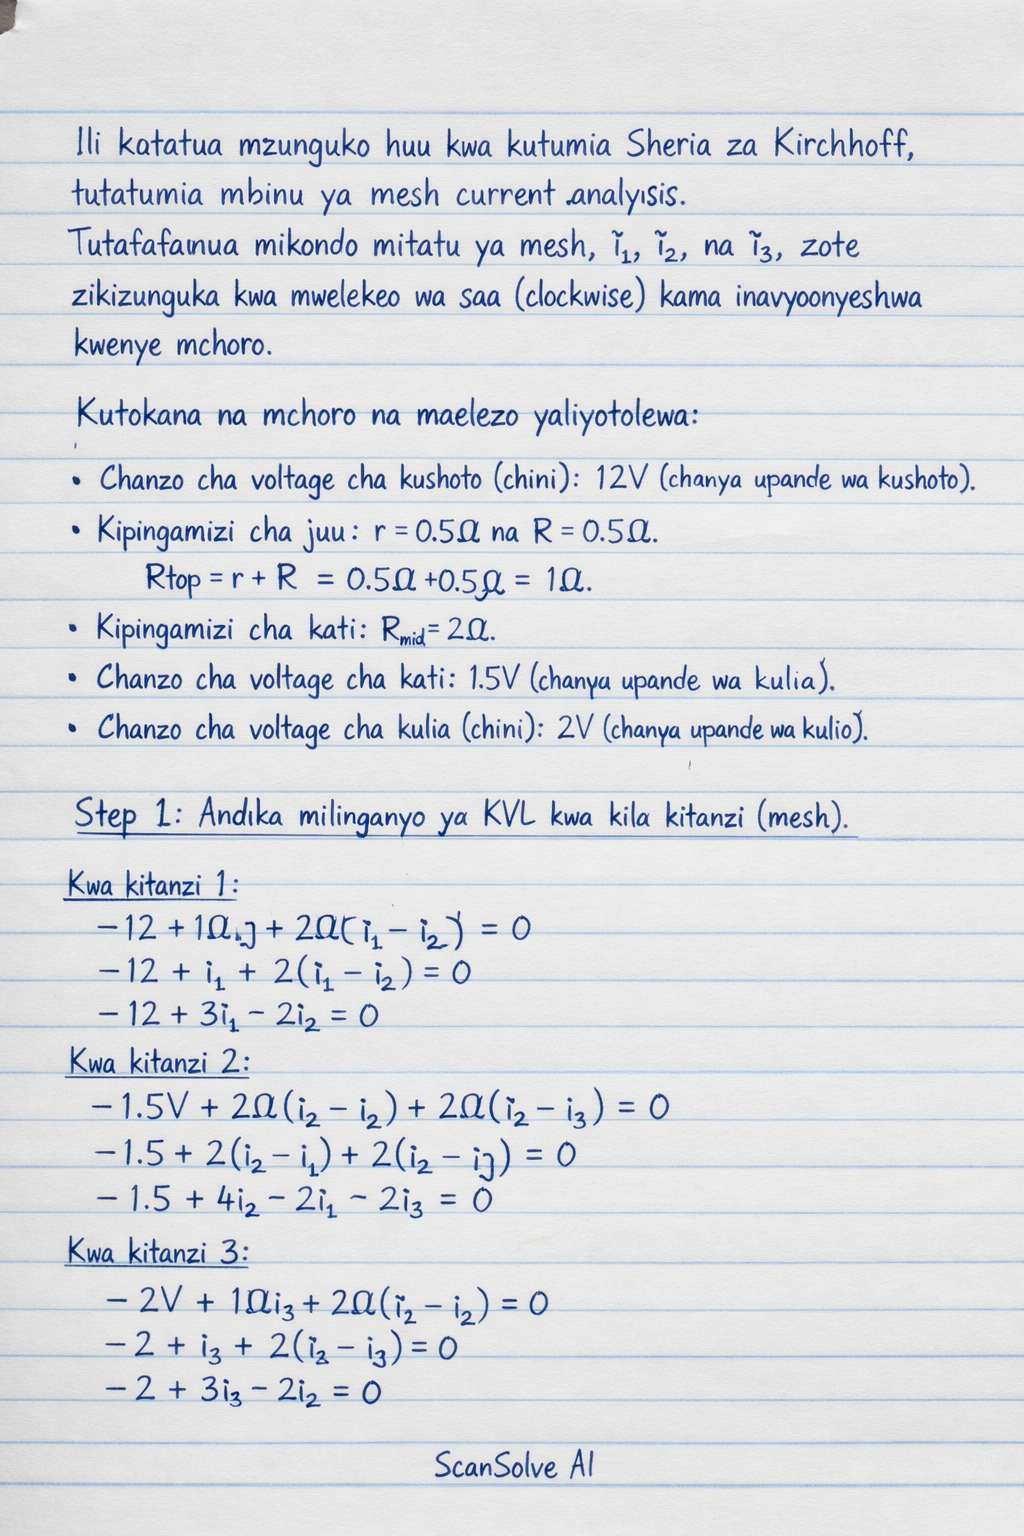 Ili katatua mzunguko huu kwa kutumia Sheria za Kirchhoff,
tutatumia mbinu ya mesh current analyisis.
Tutafafamua mikondo mitatu ya mesh, i₁, i₂, na i₃, zote
zikizunguka kwa mwelekeo wa saa (clockwise) kama inavyoonyeshwa
kwenye mchoro.
Kutokana na mchoro na maelezo yaliyotolewa:
• Chanzo cha voltage cha kushoto (chini): 12V (chanya upande wa kushoto).
• Kipingamizi cha juu: r = 0.5Ω na R = 0.5Ω.
Rtop = r + R = 0.5Ω + 0.5Ω = 1Ω.
• Kipingamizi cha kati: Rmid = 2Ω.
• Chanzo cha voltage cha kati: 1.5V (chanya upande wa kulia).
• Chanzo cha voltage cha kulia (chini): 2V (chanya upande wa kulio).
Step 1: Andika milinganyo ya KVL kwa kila kitanzi (mesh).
Kwa kitanzi 1:
−12 + 1Ω + 2Ω(i₁ − i₂) = 0
−12 + i₁ + 2(i₁ − i₂) = 0
−12 + 3i₁ − 2i₂ = 0
Kwa kitanzi 2:
−1.5V + 2Ω(i₂ − i₂) + 2Ω(i₂ − i₃) = 0
−1.5 + 2(i₂ − i₁) + 2(i₂ − i) = 0
−1.5 + 4i₂ − 2i₁ − 2i₃ = 0
Kwa kitanzi 3:
−2V + 1Ωi₃ + 2Ω(i₂ − i₂) = 0
−2 + i₃ + 2(i₃ − i₃) = 0
−2 + 3i₃ − 2i₂ = 0
ScanSolve AI